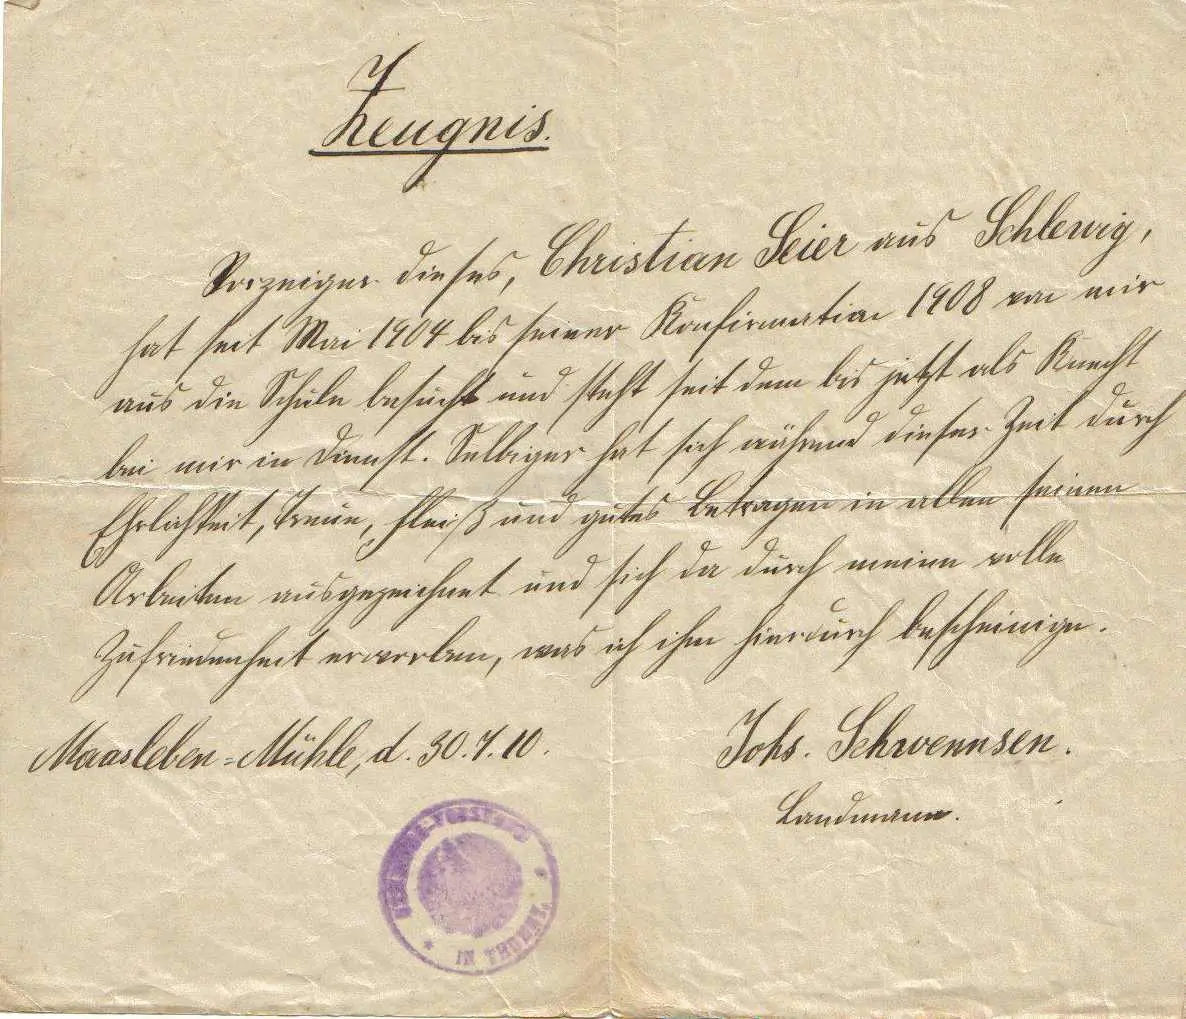 Zeugnis.
Vorzeiger dieses, Christian Seier aus Schlewig,
hat seit Mai 1904 bis seiner Konfirmation 1908 von mir
aus die Schule besucht und steht seit dem bis jetzt als Knecht
bei mir in Dienst. Selbiger hat sich während dieser Zeit durch
Ehrlichkeit, Treue, Fleiß und gutes Betragen in allen seinen
Arbeiten ausgezeichnet und sich da durch meine volle
Zufriedenheit erworben, was ich ihm hierdurch bescheinige.
Maasleben=Mühle, d. 30.7.10.
Johs. Schwennsen.
Landmann.
GEMEINDE-VORSTAND
* IN THUMBY. *